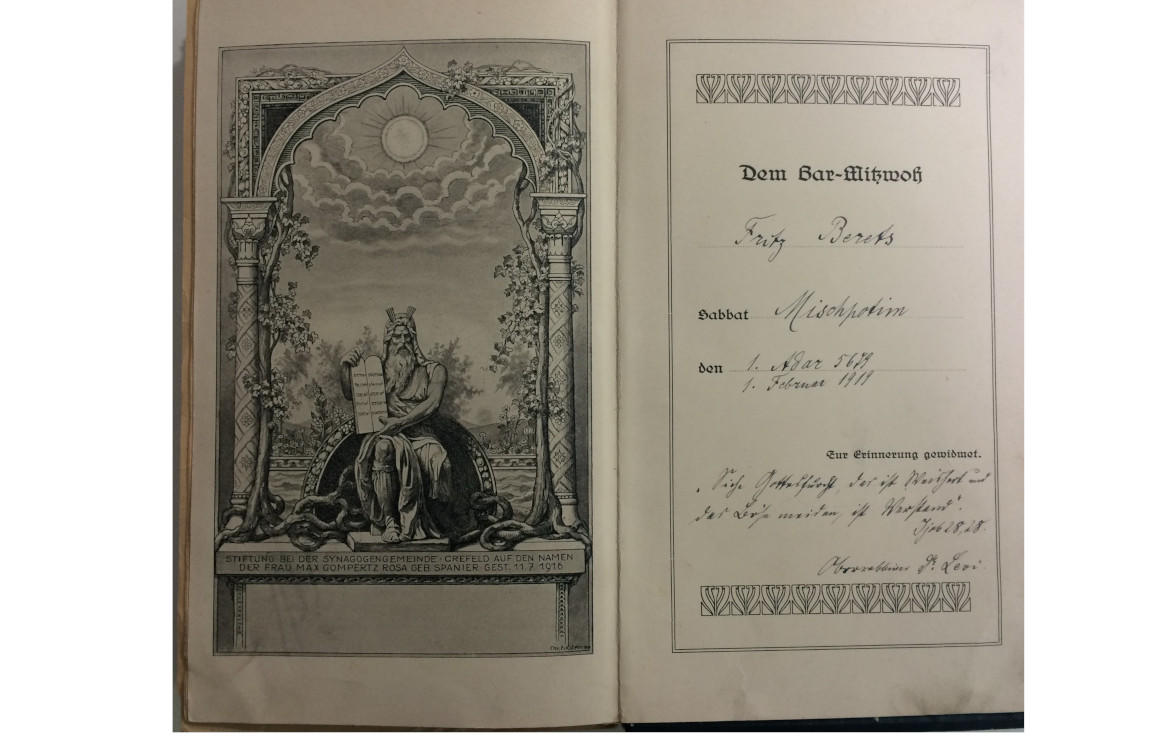 STIFTUNG BEI DER SYNAGOGENGEMEINDE · CREFELD AUF DEN NAMEN
DER FRAU MAX GOMPERTZ ROSA GEB. SPANIER GEST. 11.7.1916
Dem Bar-Mitzwoh
Fritz Berets
Sabbat Mischpotim
den 1. Adar 5679
1. Februar 1919
Zur Erinnerung gewidmet.
„Siehe Gottesfurcht, das ist Weisheit und
das Böse meiden, ist Verstand“.
Ijob 28,28.
Oberrabbiner Dr. Levi